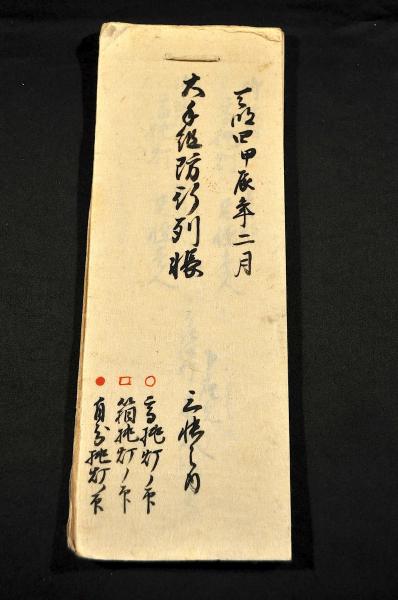 天明四甲辰年二月
大手組防行列帳
三帳之内
○高挑灯ノ印
□箱挑灯ノ印
●自分挑灯ノ印